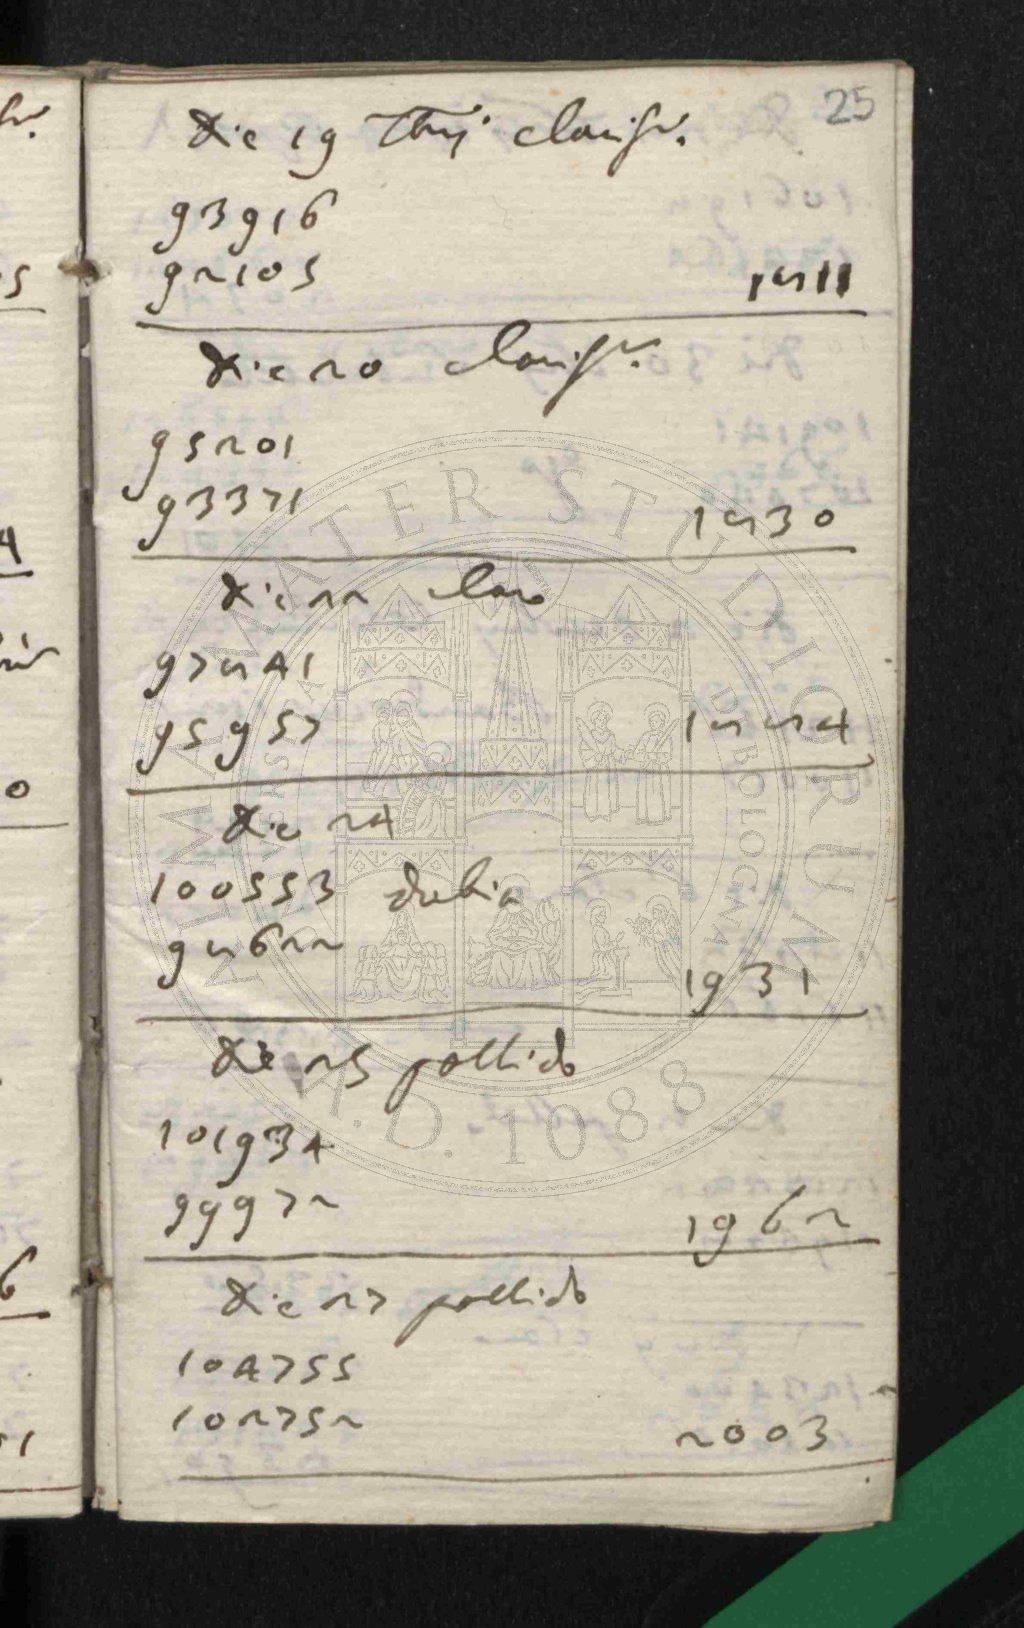 25
Die 19 7bris clariss.
93916
92105 1811
Die 20 clariss.
95201
93371 1830
Die 22 claro
97841
95957 1884
Die 24
100553 dubia
98622 1931
Die 25 pallido
101934
99972 1962
Die 27 pallido
104755
102752 2003
ALMA MATER STUDIORUM
A.D. 1088